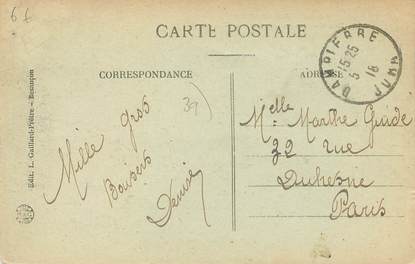 6 f
CARTE POSTALE
CORRESPONDANCE
ADRESSE
DAMPIERRE
15 25
5
18
JURA
39
Mille gros
Baisers
Denise
Melle Marthe Guide
32 rue
Duhesne
Paris
Edit. L. Gaillard-Prêtre - Besançon